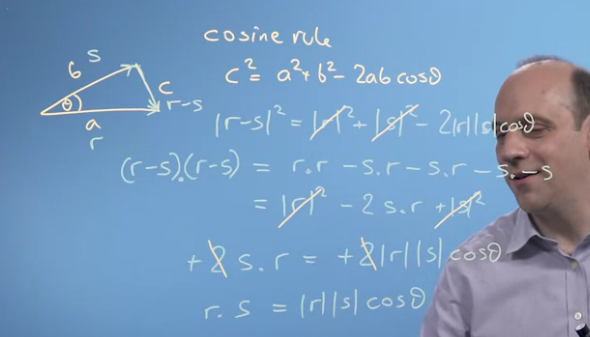 cosine rule
c² = a² + b² - 2ab cosθ
b s
θ
c
r-s
a
r
|r-s|² = |r|² + |s|² - 2|r||s| cosθ
(r-s).(r-s) = r.r - s.r - s.r - s.-s
= |r|² - 2 s.r + |s|²
+2 s.r = +2|r||s| cosθ
r.s = |r||s| cosθ